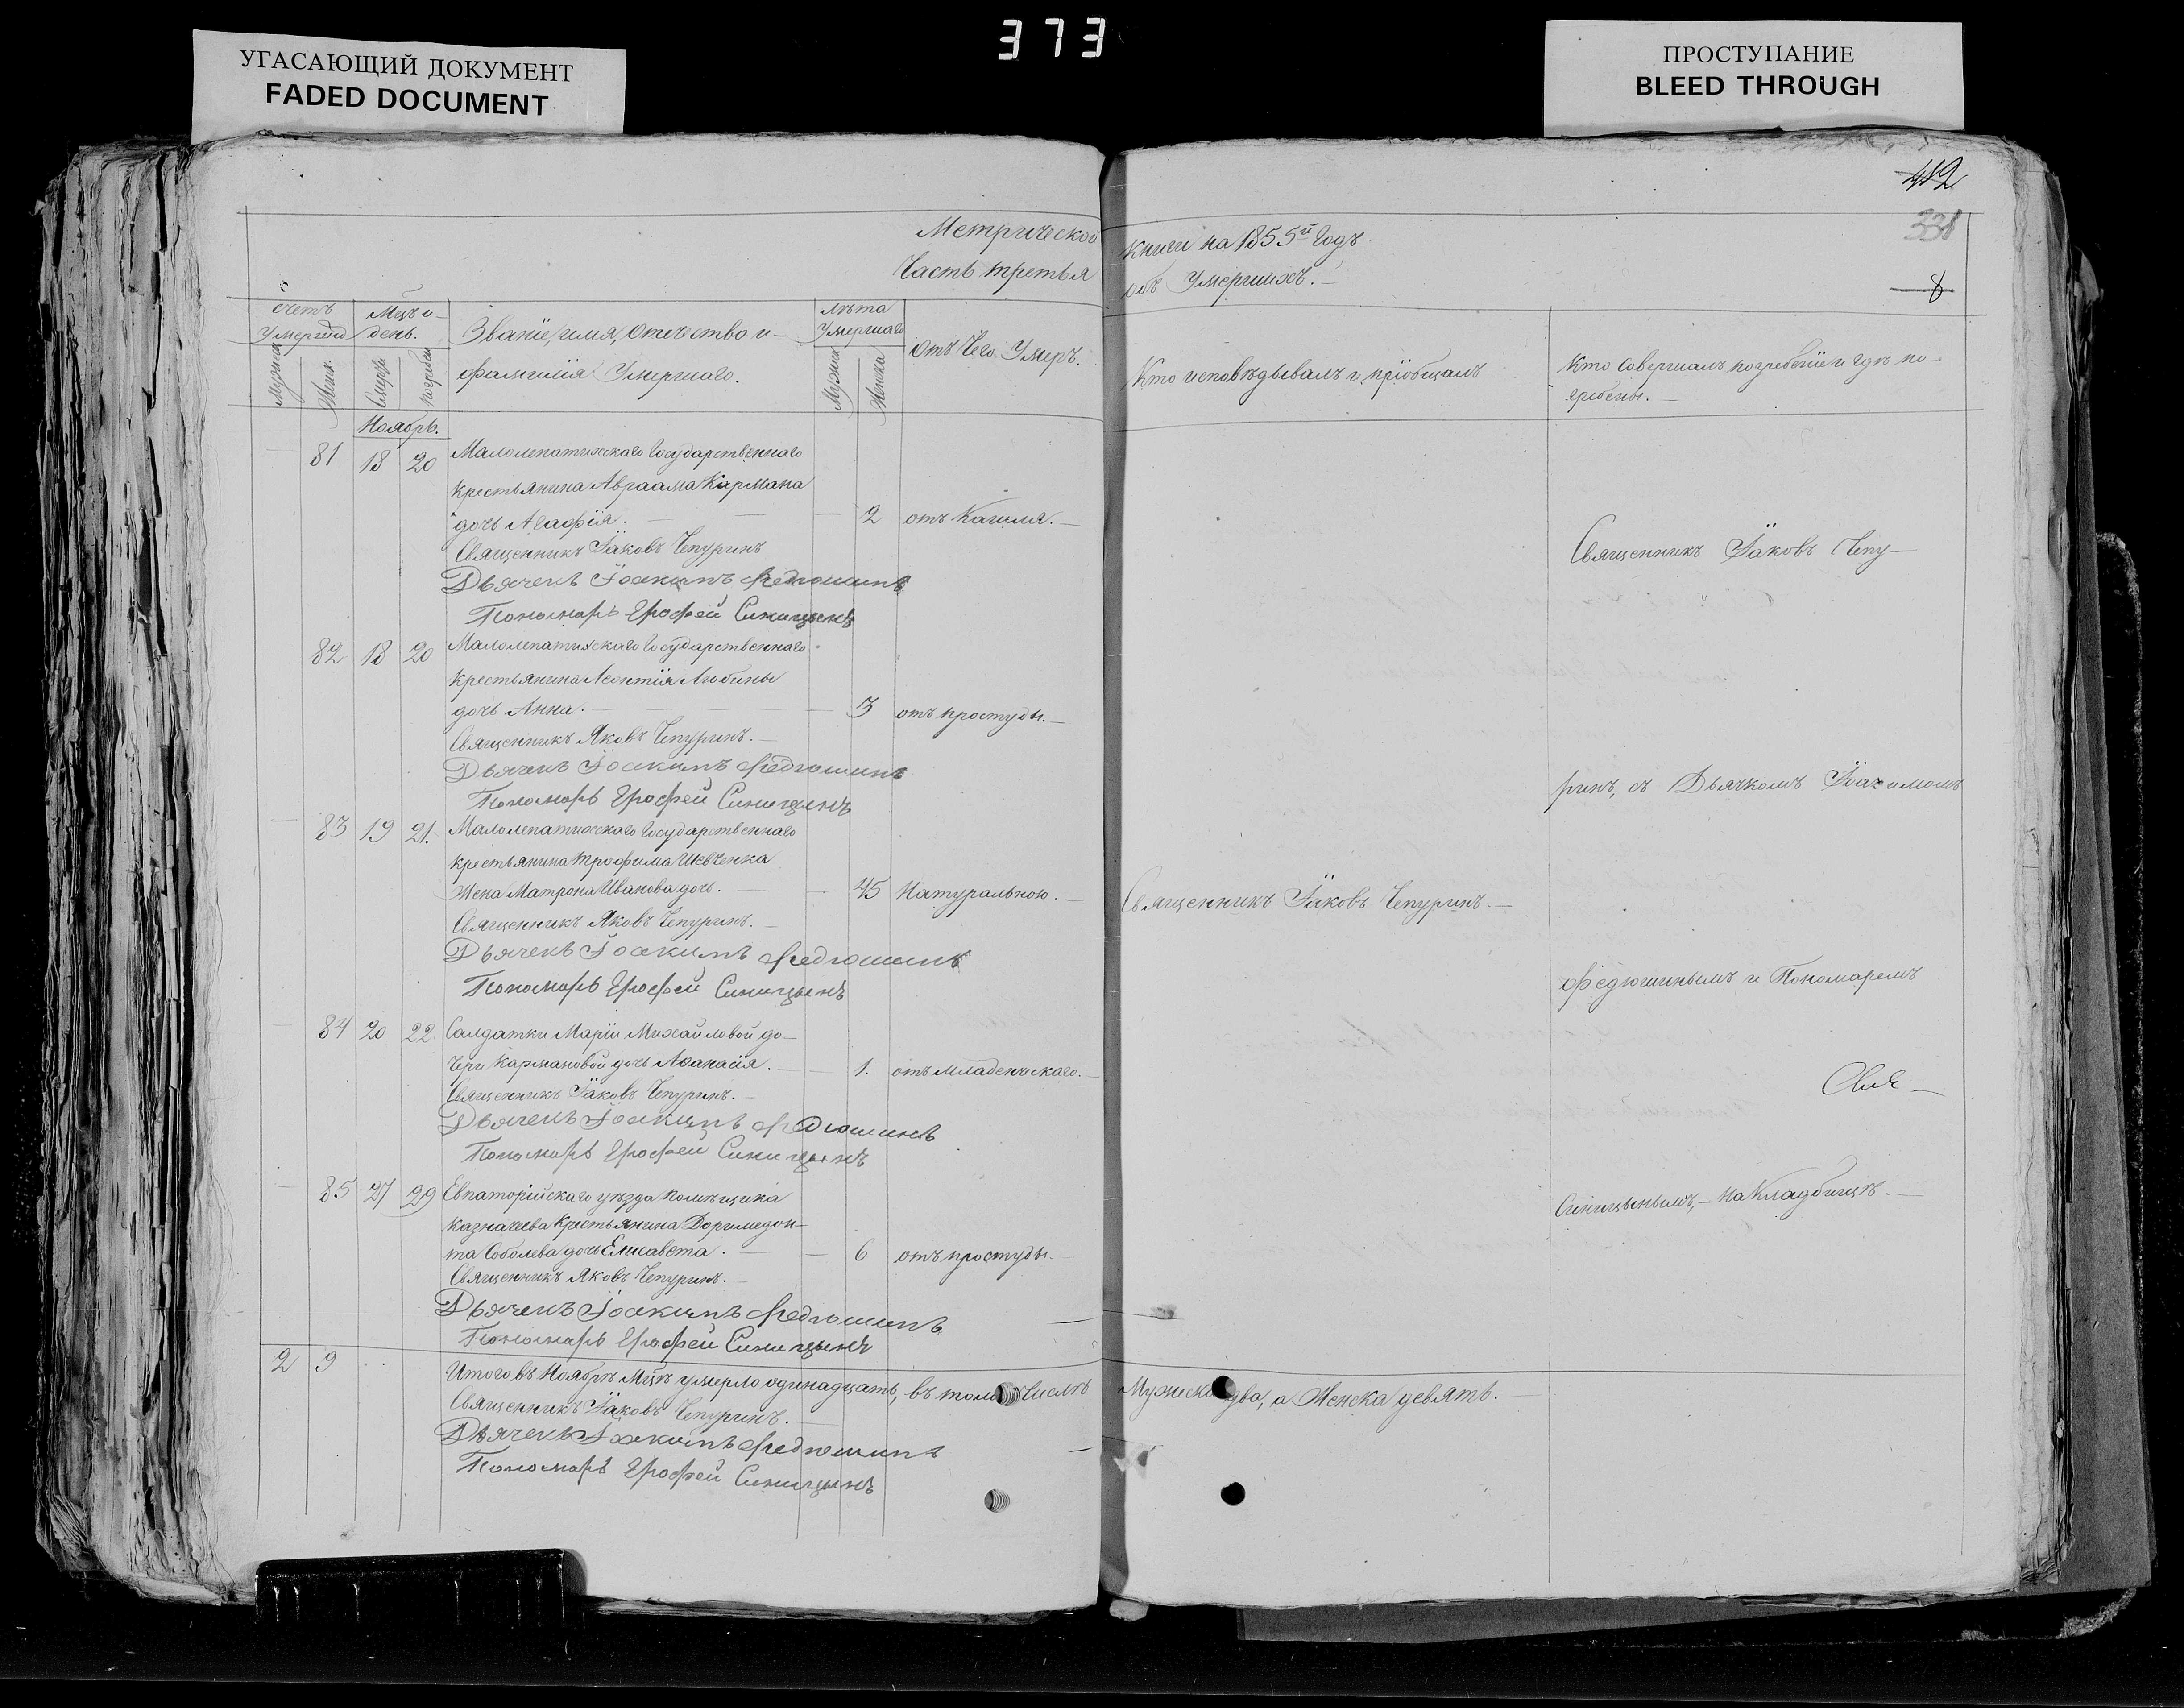 373
УГАСАЮЩИЙ ДОКУМЕНТ
FADED DOCUMENT
ПРОСТУПАНИЕ
BLEED THROUGH
412
338
8
Метрической книги на 1855й Годъ
Часть третья объ Умершихъ.
Счетъ Умершихъ
Мцъ и день.
Званіе, имя, отечество и фамилія Умершаго.
Лѣта Умершаго
Отъ Чего Умеръ.
Кто исповѣдывалъ и пріобщалъ
Кто Совершалъ погребеніе и гдѣ погребены.
Мужеск. Женск. Смерти погребен. Мужеск Женска
Ноябрь.
81 18 20 Малолепатихскаго Государственнаго
крестьянина Авраама Кармана
дочь Агафія. — 2 отъ Кашля. —
Священникъ Іаковъ Чепуринъ
Дьячекъ Іоакимъ Федюшинъ
Пономарь Ерофей Синицынъ
82 18 20 Малолепатихскаго Государственнаго
крестьянина Леонтія Любины
дочь Анна. — 3 отъ простуды. —
Священникъ Яковъ Чепуринъ. —
Дьячекъ Іоакимъ Федюшинъ
Пономарь Ерофей Синицынъ
83 19 21. Малолепатихскаго Государственнаго
крестьянина Трофима Шевченка
Жена Матрона Иванова дочь. — 45 Натуральною. — Священникъ Іаковъ Чепуринъ. —
Священникъ Яковъ Чепуринъ. —
Дьячекъ Іоакимъ Федюшинъ
Пономарь Ерофей Синицынъ
84 20 22 Салдатки Маріи Михайловой до-
чери Кармановой дочь Аѳанасія. — 1. отъ Младенческаго. —
Священникъ Іаковъ Чепуринъ. —
Дьячекъ Іоакимъ Федюшинъ
Пономарь Ерофей Синицынъ
85 27 29 Евпаторійскаго уѣзда помѣщика
Казначеева Крестьянина Доримедон-
та Соболева дочь Елисавета. — 6 отъ простуды. —
Священникъ Яковъ Чепуринъ. —
Дьячекъ Іоакимъ Федюшинъ
Пономарь Ерофей Синицынъ
Священникъ Іаковъ Чепу-
ринъ, съ Дьячкомъ Іоакимомъ
Федюшинымъ и Пономаремъ
Синицынымъ, — на Кладбищѣ. —
2 9 Итого въ Ноябрѣ Мцѣ умерло одинадцать, въ томъ Числѣ Мужска два, а Женска девять. —
Священникъ Іаковъ Чепуринъ. —
Дьячекъ Іоакимъ Федюшинъ
Пономарь Ерофей Синицынъ